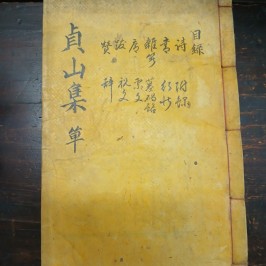 貞山集 單
目錄
詩 附錄
書 行狀
雜著 墓碣銘
序 祭文
跋 祝文
贊 辞